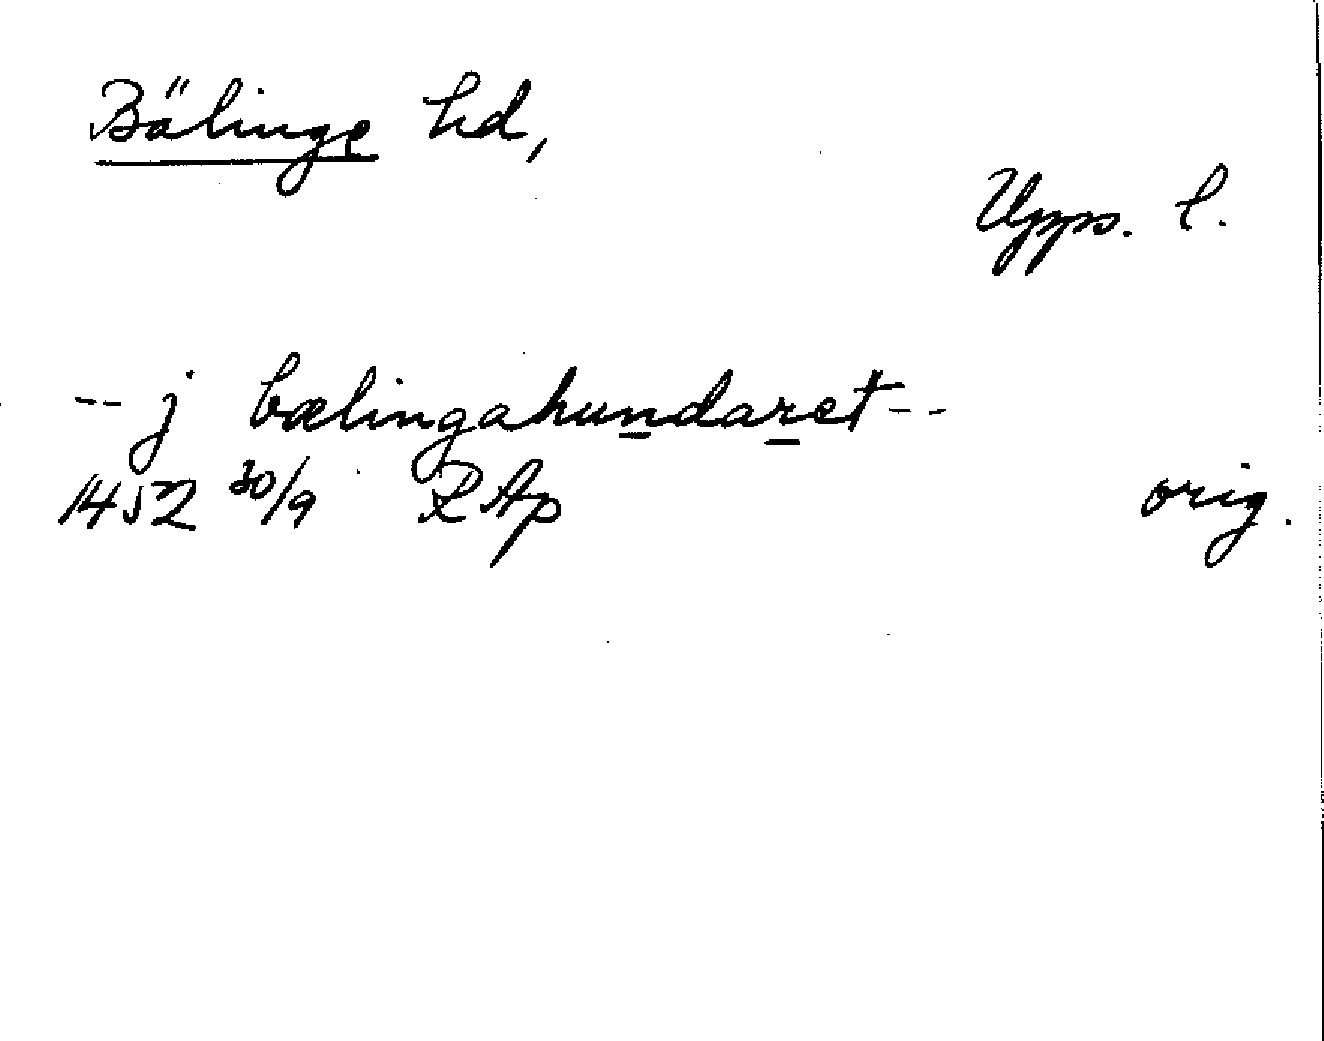 Bälinge hd,
Upps. l.
-- j bælingahundaret --
1452 30/9 RAp orig.